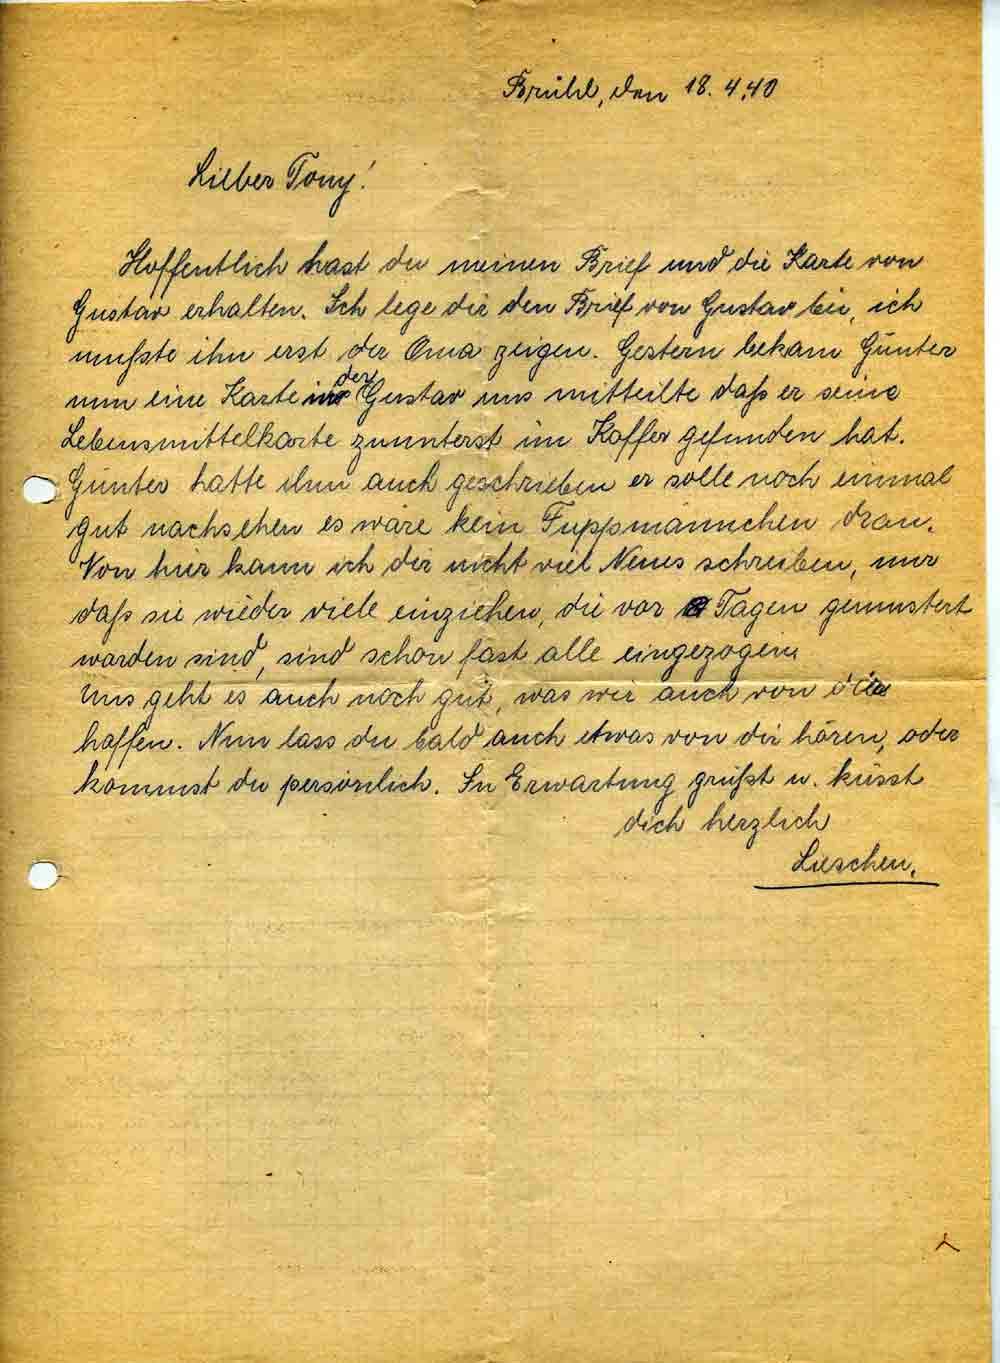 Brühl, den 18.4.40
Lieber Tony!
Hoffentlich hast du meinen Brief und die Karte von
Gustav erhalten. Ich lege dir den Brief von Gustav bei, ich
mußte ihn erst der Oma zeigen. Gestern bekam Günter
nun eine Karte in der Gustav uns mitteilte daß er seine
Lebensmittelkarte zuunterst im Koffer gefunden hat.
Günter hatte ihm auch geschrieben er solle noch einmal
gut nachsehen es wäre kein Fuppmännchen dran.
Von hier kann ich dir nicht viel Neues schreiben, nur
daß sie wieder viele einziehen, die vor 8 Tagen gemustert
worden sind, sind schon fast alle eingezogen.
Uns geht es auch noch gut, was wir auch von dir
hoffen. Nun lass du bald auch etwas von dir hören, oder
kommst du persönlich. In Erwartung grüßt u. küsst
dich herzlich
Lieschen.